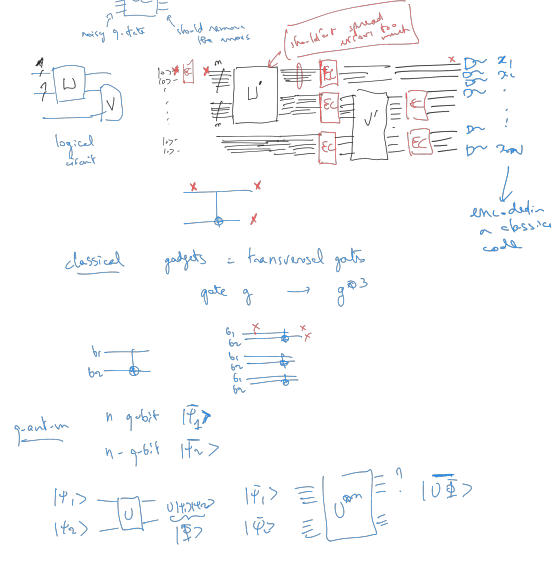 noisy q. data
should remove the errors
shouldn't spread errors too much
U
V
logical circuit
|0> EC
|0>
m
U'
m
EC
EC
EC
V'
EC
EC
x1
x2
encoded in a classical code
classical gadgets = transversal gates
gate g → g⊗3
b1
b2
b1
b2
b1
b2
b1
b2
quantum
n qubit |ψ̄1>
n-qubit |ψ̄2>
|ψ1>
|ψ2>
U
U|ψ1>|ψ2>
|Φ>
|ψ̄1>
|ψ̄2>
U⊗n
?
|UΦ>